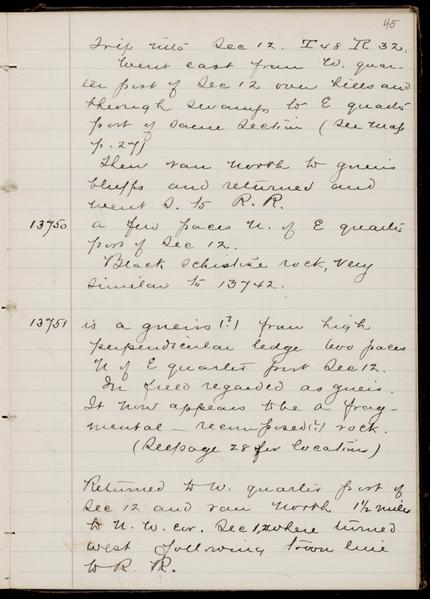 45
Trip into Sec 12. T 48 R 32.
Went east from W. quar-
ter post of Sec 12 over hills and
through swamps to E quarter
post of same section (See map
p. 27)
Then ran north to gneis
bluffs and returned and
went S. to R. R.
13750 a few paces N. of E quarter
post of Sec 12.
Black schistose rock, very
similar to 13742.
13751 is a gneiss (?) from high
perpendicular ledge 600 paces
N of E quarter post Sec 12.
In field regarded as gneis.
It now appears to be a frag-
mental – recomposed (?) rock.
(See page 28 for location)
Returned to W. quarter post of
Sec 12 and ran north 1½ miles
to N. W. cor. Sec 1, where turned
west following town line
to R. R.